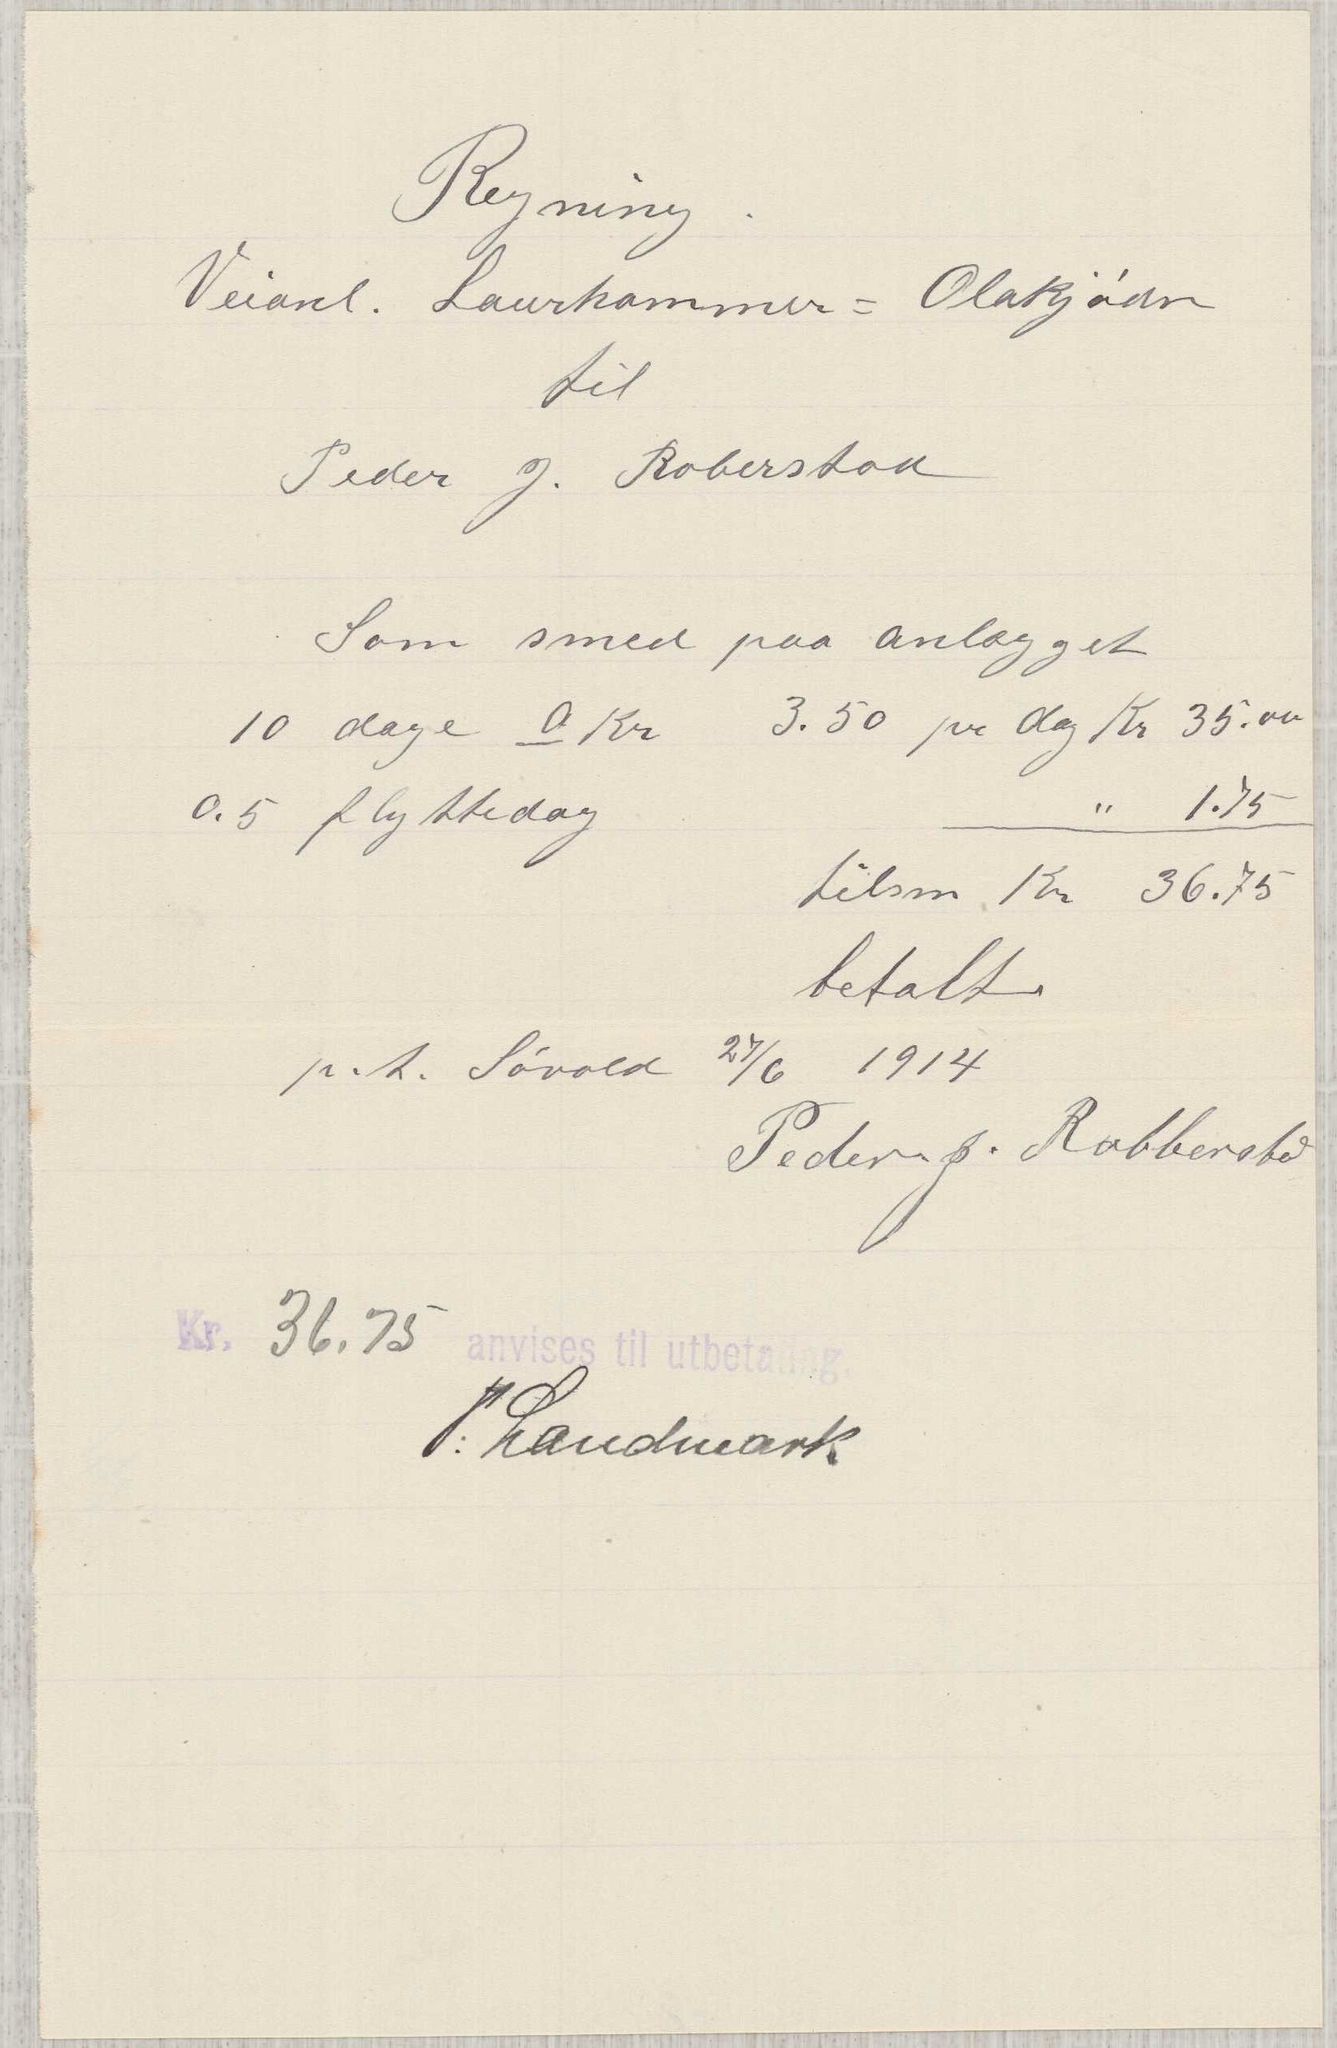 Regning.
Veianl. Laurhammer = Olakjødn
til
Peder J. Roberstad
Som smed paa anlægget
10 dage a Kr 3.50 pr dag Kr 35.00
0.5 flyttedag " 1.75
tilsm Kr 36.75
betalt.
p.t. Sövold 27/6 1914
Peder J. Robberstad
Kr. 36.75 anvises til utbetaling.
Landmark